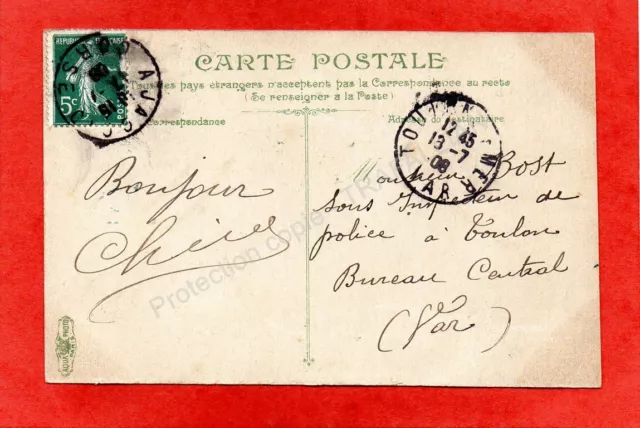 REPUBLIQUE FRANÇAISE
5c
POSTES
AJACC
CORSE
CARTE POSTALE
Tous les pays étrangers n'acceptent pas la Correspondance au recto
(Se renseigner à la Poste)
Correspondance
Adresse du destinataire
TOULON
MER
12 45
13 -7
08
VAR
Bonjour
Monsieur Bost
sous Inspecteur de
police à Toulon
Bureau Central
(Var)
Protection copie
AQUA PHOTO
PARIS